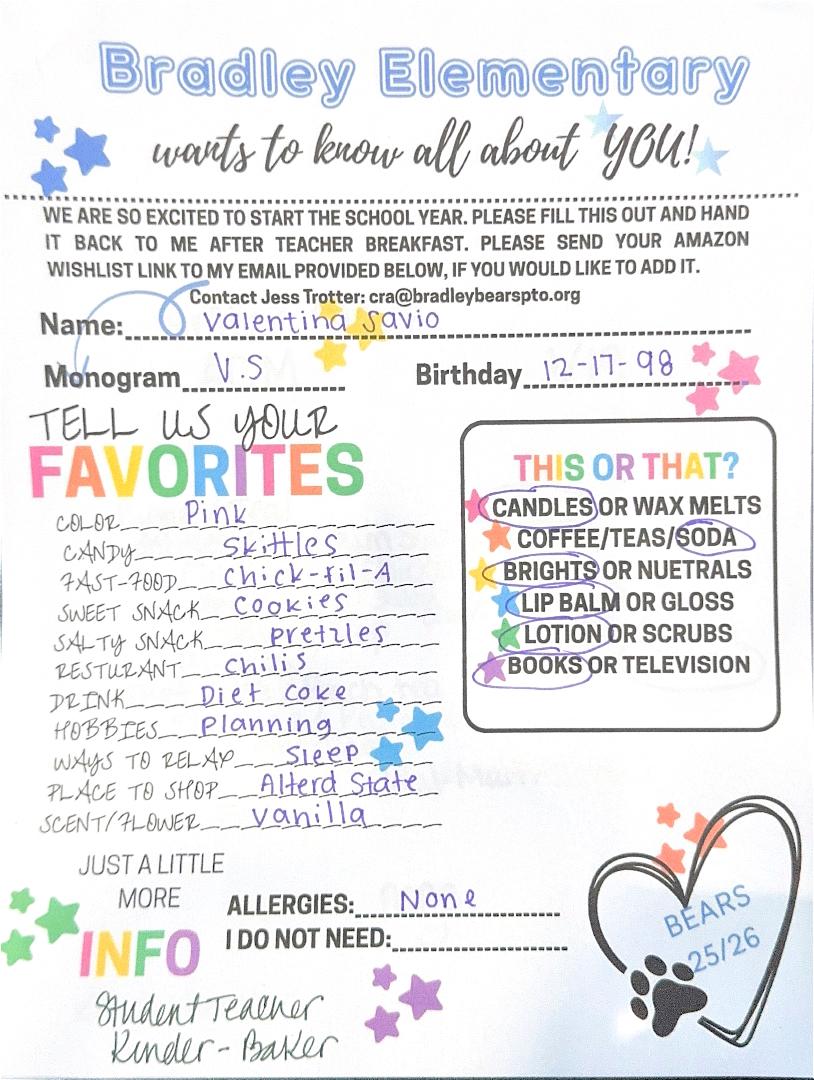 Bradley Elementary
wants to know all about YOU!
WE ARE SO EXCITED TO START THE SCHOOL YEAR. PLEASE FILL THIS OUT AND HAND
IT BACK TO ME AFTER TEACHER BREAKFAST. PLEASE SEND YOUR AMAZON
WISHLIST LINK TO MY EMAIL PROVIDED BELOW, IF YOU WOULD LIKE TO ADD IT.
Contact Jess Trotter: cra@bradleybearspto.org
Name: Valentina Savio
Monogram V.S Birthday 12-17-98
TELL US YOUR
FAVORITES
COLOR Pink
CANDY Skittles
FAST-FOOD Chick-fil-A
SWEET SNACK Cookies
SALTY SNACK pretzles
RESTURANT chilis
DRINK Diet coke
HOBBIES Planning
WAYS TO RELAX Sleep
PLACE TO SHOP Alterd State
SCENT/FLOWER vanilla
THIS OR THAT?
CANDLES OR WAX MELTS
COFFEE/TEAS/SODA
BRIGHTS OR NUETRALS
LIP BALM OR GLOSS
LOTION OR SCRUBS
BOOKS OR TELEVISION
JUST A LITTLE
MORE
INFO
ALLERGIES: None
I DO NOT NEED:
BEARS
25/26
Student Teacher
Kinder - Baker